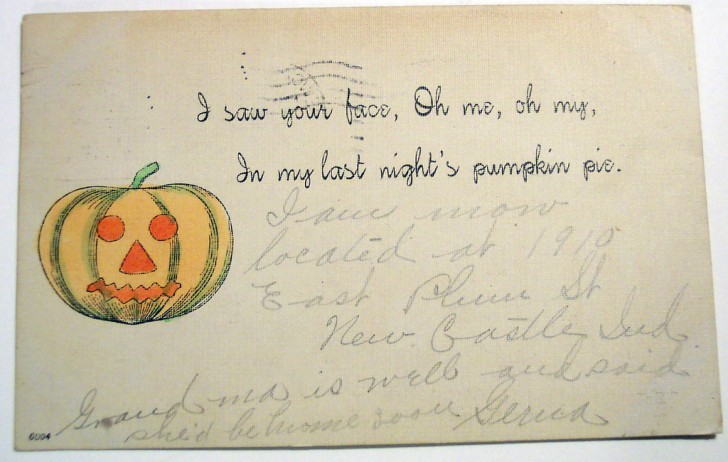 I saw your face, Oh me, oh my,
In my last night's pumpkin pie.
I am now
located at 1910
East Plum St
New Castle, Ind.
Grandma is well and said
she'd be home soon
6004